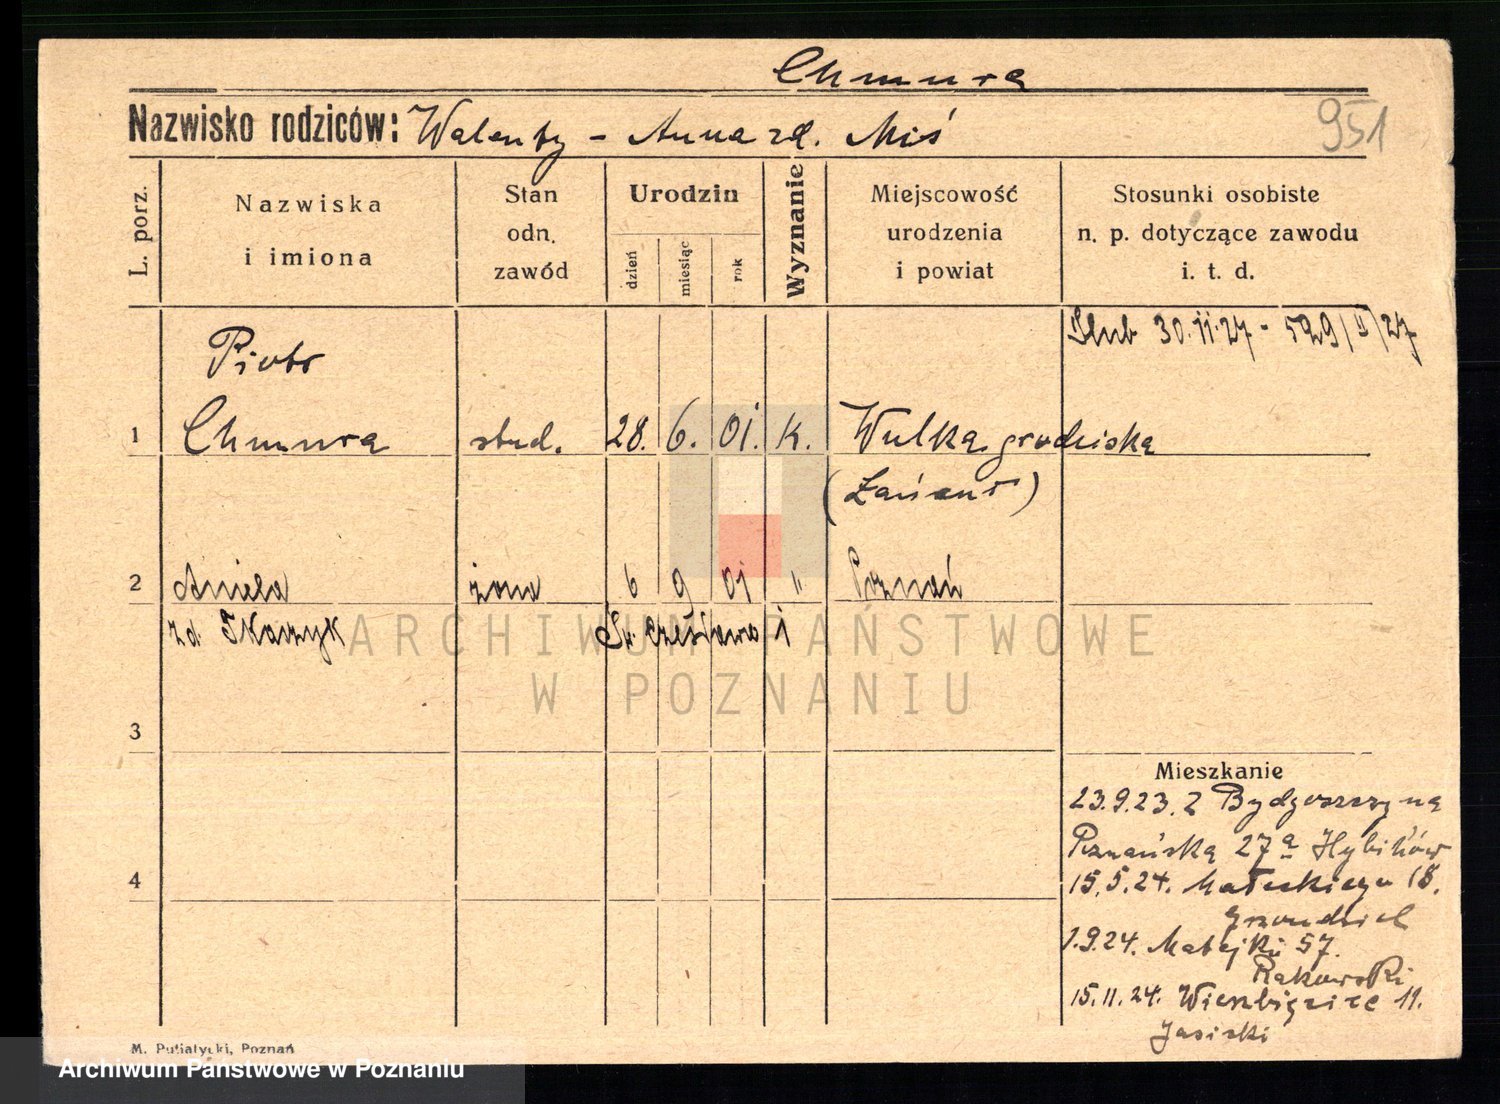 Chmura
Nazwisko rodziców: Walenty - Anna zd. Miś
951
L. porz.
Nazwiska
i imiona
Stan
odn.
zawód
Urodzin
dzień
miesiąc
rok
Wyznanie
Miejscowość
urodzenia
i powiat
Stosunki osobiste
n. p. dotyczące zawodu
i. t. d.
Ślub 30.11.27 - 529/II/27
Piotr
1 Chmura stud. 28. 6. 01. K. Wulka grodziska
(Łańcut)
2 Aniela żona 6 9 01 " Poznań
zd. Skarzyk Św. Czesława 1
ARCHIWUM PAŃSTWOWE
W POZNANIU
3
Mieszkanie
23.9.23. z Bydgoszczy na
Poznańską 27a
4
15.5.24. Małeckiego 18.
Grzondziel
1.9.24. Matejki 57.
Rakowski
15.11.24. Wierzbięcice 11.
Jasiski
M. Putiatycki, Poznań
Archiwum Państwowe w Poznaniu